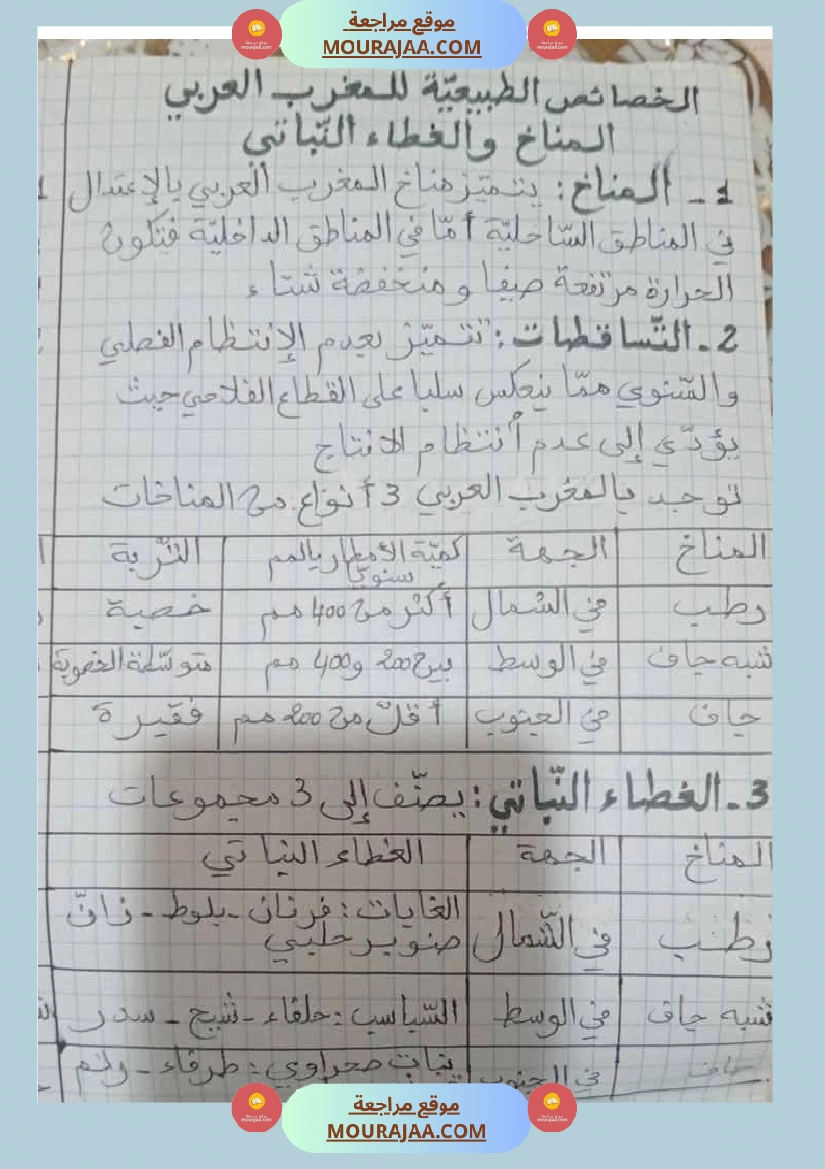 موقع مراجعة
MOURAJAA.COM
الخصائص الطبيعيّة للمغرب العربي
المناخ والغطاء النّباتي
1 - المناخ: يتميّز مناخ المغرب العربي بالإعتدال
في المناطق السّاحليّة أمّا في المناطق الداخليّة فتكون
الحرارة مرتفعة صيفا ومنخفضة شتاء
2 - التّساقطات: تتميّز بعدم الإنتظام الفصلي
والسّنوي ممّا ينعكس سلبا على القطاع الفلاحي حيث
يؤدّي إلى عدم أنتظام الانتاج
توجد بالمغرب العربي 3 أنواع من المناخات
المناخ الجهة كميّة الأمطار بالمم سنويّا التّربة
رطب في الشمال أكثر من 400 مم خصبة
شبه جاف في الوسط بين 200 و 400 مم متوسّطة الخصوبة
جاف في الجنوب أقلّ من 200 مم فقيرة
3 - الغطاء النّباتي: يصنّف إلى 3 مجموعات
المناخ الجهة الغطاء النباتي
رطب في الشّمال الغابات: فرنان - بلوط - زانّ
صنوبر حلبي
شبه جاف في الوسط السّباسب: حلفاء - شيح - سدر
جاف في الجنوب نبات صحراوي: طرفاء - رتم
موقع مراجعة
MOURAJAA.COM